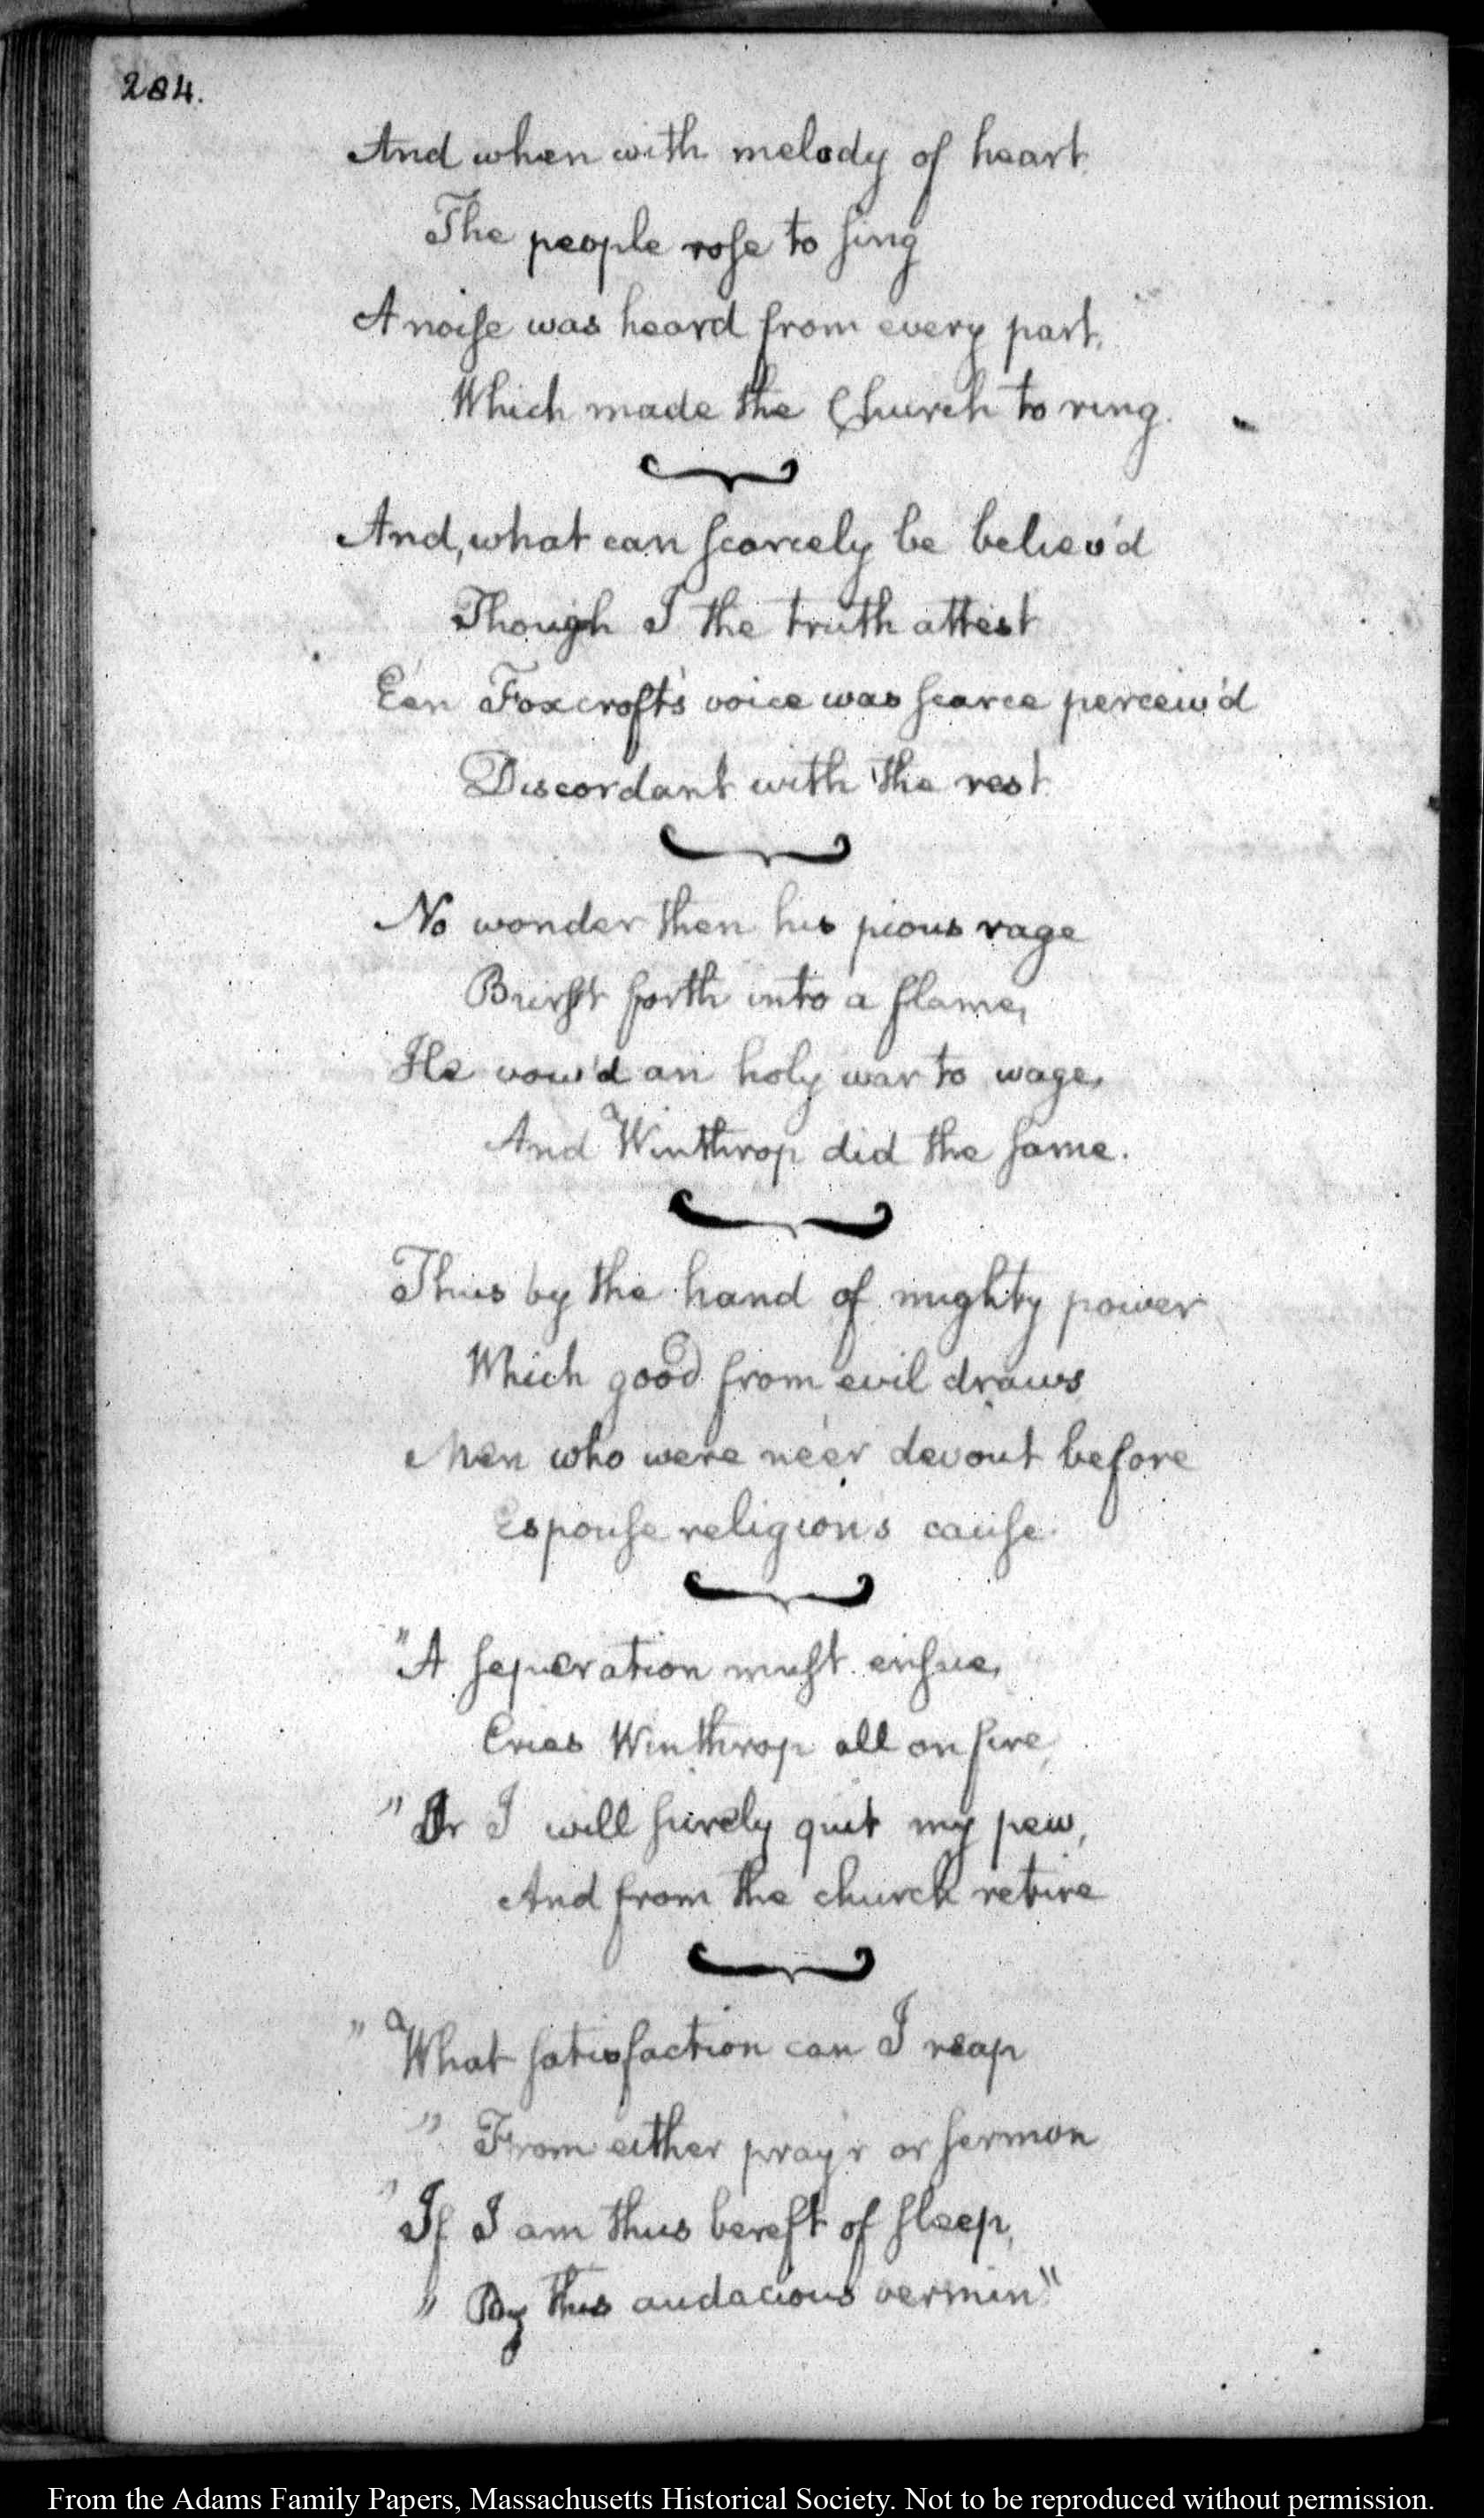 284.
And when with melody of heart
The people rose to sing
A noise was heard from every part,
Which made the Church to ring.
And, what can scarcely be believ'd
Though I the truth attest
E'en Foxcroft's voice was scarce perceiv'd
Discordant with the rest
No wonder then his pious rage
Burst forth into a flame,
He vow'd an holy war to wage,
And Winthrop did the same.
Thus by the hand of mighty power,
Which good from evil draws
Men who were ne'er devout before
Espouse religion's cause.
"A seperation must ensue,
Cries Winthrop all on fire,
"Or I will surely quit my pew,
And from the church retire
"What satisfaction can I reap
"From either pray'r or sermon
"If I am thus bereft of sleep,
"By this audacious vermin"
From the Adams Family Papers, Massachusetts Historical Society. Not to be reproduced without permission.